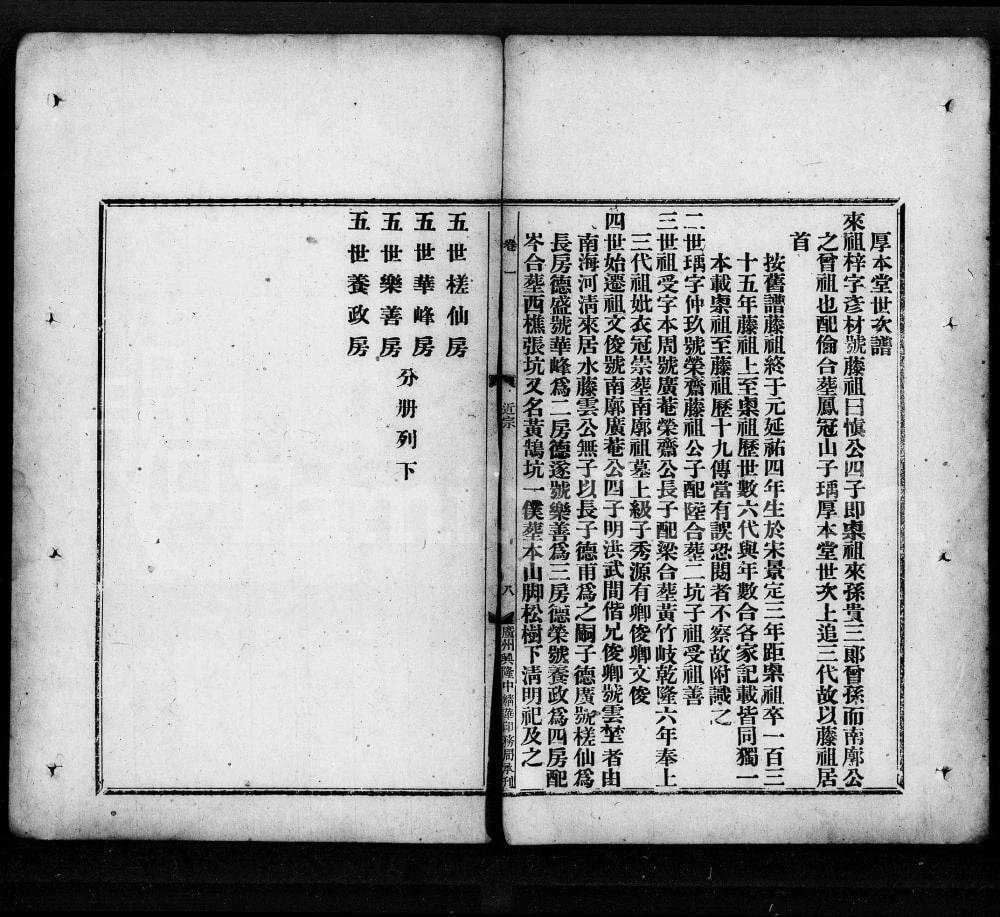 厚本堂世次譜
來祖梓字彥材號藤祖曰慎公四子即㮚祖來孫貴三郞曾孫而南廓公
之曾祖也配倫合葬鳳冠山子瑀厚本堂世次上追三代故以藤祖居
首
按舊譜藤祖終于元延祐四年生於宋景定三年距㮚祖卒一百三
十五年藤祖上至㮚祖歷世數六代與年數合各家記載皆同獨一
本載㮚祖至藤祖歷十九傳當有誤恐閱者不察故附識之
二世瑀字仲玖號榮齋藤祖公子配陸合葬二坑子祖受祖善
三世祖受字本周號廣菴榮齋公長子配梁合葬黃竹岐乾隆六年奉上
三代祖妣衣冠崇葬南廓祖墓上級子秀源有卿俊卿文俊
四世始遷祖文俊號南廓廣菴公四子明洪武間偕兄俊卿號雲埜者由
南海河淸來居水藤雲公無子以長子德甫爲之嗣子德廣號槎仙爲
長房德盛號華峰爲二房德遂號樂善爲三房德榮號養政爲四房配
岑合葬西樵張坑又名黃鵠坑一僕葬本山脚松樹下淸明祀及之
卷一
近宗
八
廣州興隆中精華印務局承刊
五世槎仙房
五世華峰房
分册列下
五世樂善房
五世養政房